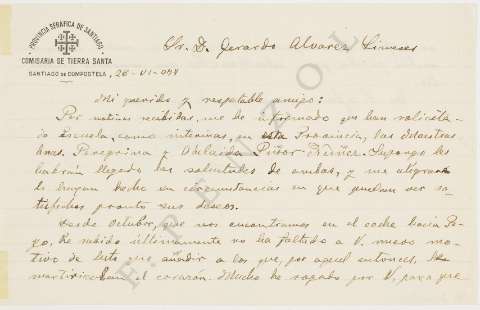 PROVINCIA SERÁFICA DE SANTIAGO
COMISARIA DE TIERRA SANTA
SANTIAGO DE COMPOSTELA, 26-VI-
Sr. D. Gerardo Alvarez Limeses
Mi querido y respetable amigo:
Por noticias recibidas, me he informado que han solicita-
do escuela, como interinas, en esta Provincia, las Maestras
Peregrina y Adelaida Núñez. Supongo les
habrán llegado las solicitudes de ambas, y me alegraré
lo hayan hecho en circunstancias en que puedan ser sa-
tisfechos pronto sus deseos.
Desde Octubre, que nos encontramos en el coche hacia
he sabido últimamente no ha faltado a V. nuevo mo-
tivo de luto que añadir a los que, por aquel entonces, le
el corazón. Mucho he rogado por V. para que
F. PRENZOL